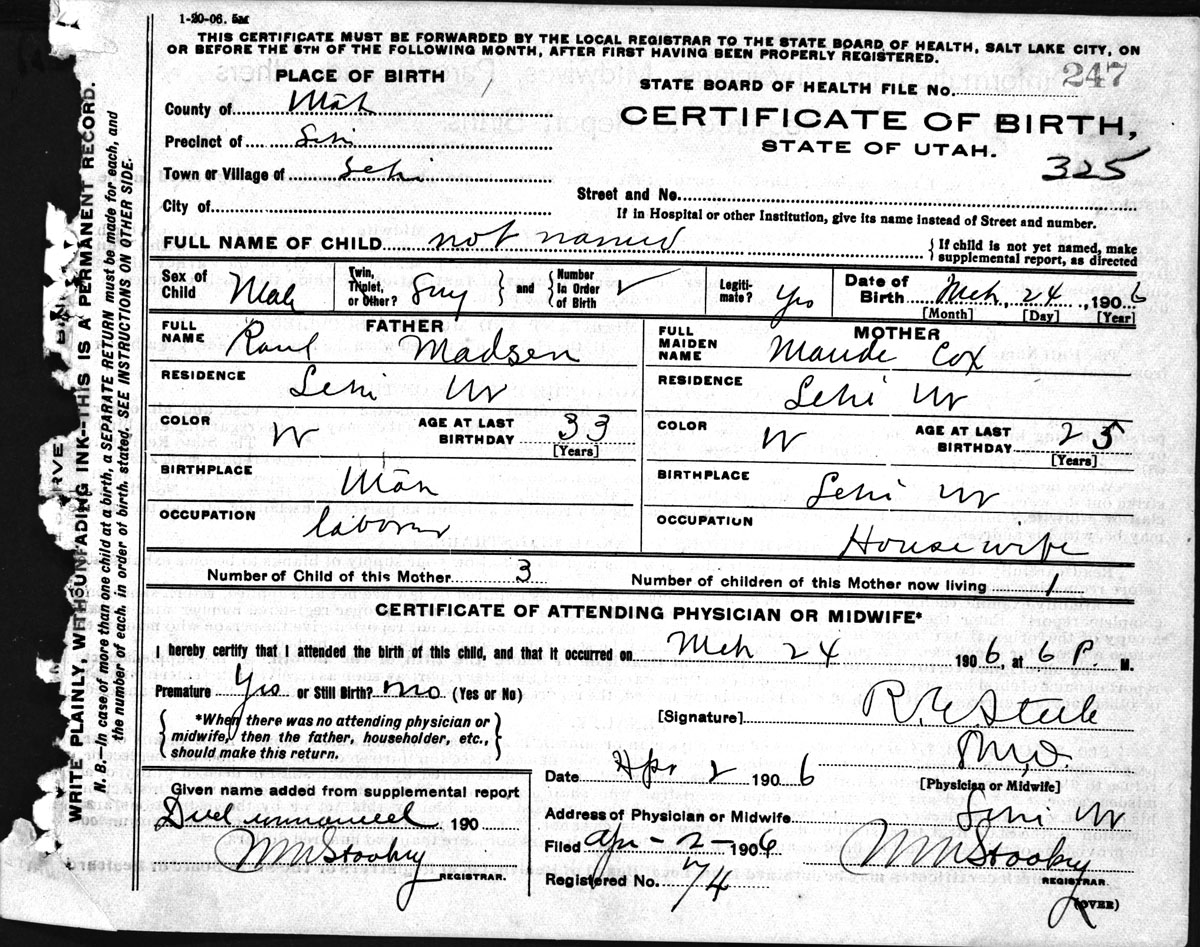 1-20-06.
THIS CERTIFICATE MUST BE FORWARDED BY THE LOCAL REGISTRAR TO THE STATE BOARD OF HEALTH, SALT LAKE CITY, ON
OR BEFORE THE 5TH OF THE FOLLOWING MONTH, AFTER FIRST HAVING BEEN PROPERLY REGISTERED.
PLACE OF BIRTH
STATE BOARD OF HEALTH FILE NO. 247
County of Utah
CERTIFICATE OF BIRTH,
Precinct of Lehi
STATE OF UTAH.
325
Town or Village of Lehi
Street and No.
City of
If in Hospital or other Institution, give its name instead of Street and number.
FULL NAME OF CHILD not named
{ If child is not yet named, make supplemental report, as directed
Sex of Child Male
Twin, Triplet, or Other?
} and { Number In Order of Birth
Legiti-mate? Yes
Date of Birth Mch, 24, 1906
[Month] [Day] [Year]
FATHER
MOTHER
FULL NAME Madsen
FULL MAIDEN NAME Maude Cox
RESIDENCE Lehi Ut
RESIDENCE Lehi Ut
COLOR W AGE AT LAST BIRTHDAY 33 [Years]
COLOR W AGE AT LAST BIRTHDAY 25 [Years]
BIRTHPLACE Utah
BIRTHPLACE Lehi Ut
OCCUPATION laborer
OCCUPATION Housewife
Number of Child of this Mother 3
Number of children of this Mother now living 1
CERTIFICATE OF ATTENDING PHYSICIAN OR MIDWIFE*
I hereby certify that I attended the birth of this child, and that it occurred on Mch 24 1906, at 6 P. M.
Premature Yes or Still Birth? No (Yes or No)
{ *When there was no attending physician or midwife, then the father, householder, etc., should make this return. }
[Signature] R. E. Steele
M.D.
[Physician or Midwife]
Date Apr 2 1906
Given name added from supplemental report
Died unnamed 190
Address of Physician or Midwife Lehi Ut
Filed Apr - 2 - 1906
Wm Stooky
REGISTRAR.
Wm Stooky
REGISTRAR.
Registered No. 74
(OVER)
WRITE PLAINLY, WITH UNFADING INK--THIS IS A PERMANENT RECORD.
N. B.--In case of more than one child at a birth, a SEPARATE RETURN must be made for each, and
the number of each, in order of birth, stated. SEE INSTRUCTIONS ON OTHER SIDE.